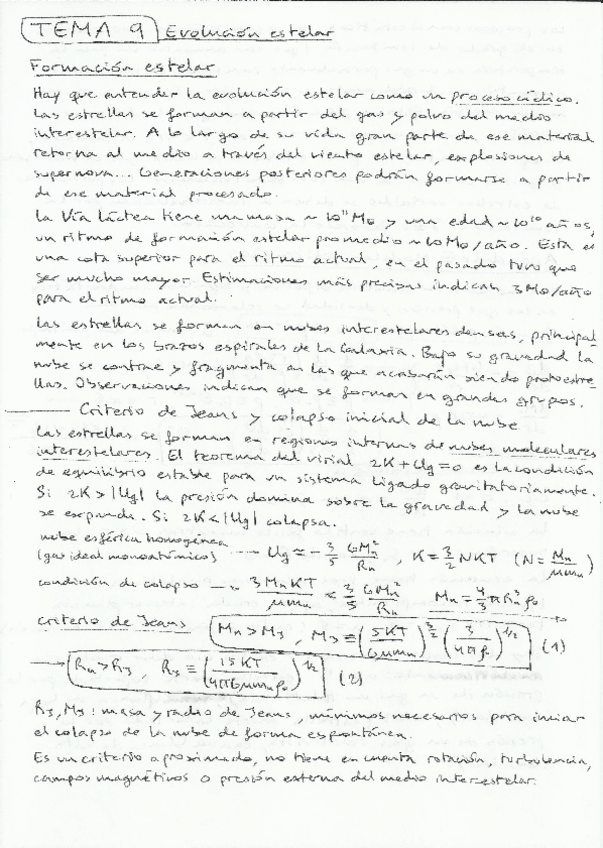 TEMA 9 Evolución estelar
Formación estelar
Hay que entender la evolución estelar como un proceso cíclico.
Las estrellas se forman a partir del gas y polvo del medio
interestelar. A lo largo de su vida gran parte de ese material
retorna al medio a través del viento estelar, explosiones de
supernova... Generaciones posteriores podrán formarse a partir
de ese material procesado.
La Vía Láctea tiene una masa ~ 10¹¹ M⊙ y una edad ~ 10¹⁰ años,
un ritmo de formación estelar promedio ~ 10 M⊙/año. Esta es
una cota superior para el ritmo actual, en el pasado tuvo que
ser mucho mayor. Estimaciones más precisas indican 3 M⊙/año
para el ritmo actual.
Las estrellas se forman en nubes interestelares densas, principal
mente en los brazos espirales de la Galaxia. Bajo su gravedad la
nube se contrae y fragmenta en las que acabarán siendo protoestre
llas. Observaciones indican que se forman en grandes grupos.
Criterio de Jeans y colapso inicial de la nube
Las estrellas se forman en regiones internas de nubes moleculares
interestelares. El teorema del virial 2K + Ug = 0 es la condición
de equilibrio estable para un sistema ligado gravitatoriamente.
Si 2K > |Ug| la presión domina sobre la gravedad y la nube
se expande. Si 2K < |Ug| colapsa.
nube esférica homogénea
(gas ideal monoatómico) Ug ≈ -3/5 GMn²/Rn , K = 3/2 NKT (N = Mn/μmn)
condición de colapso 3MnKT/μmn < 3/5 GMn²/Rn Mn = 4/3 πRn³ρ₀
criterio de Jeans Mn > MJ , MJ ≡ (5KT/Gμmn)^3/2 (3/4πρ₀)^1/2 (1)
Rn > RJ , RJ ≡ (15KT/4πGμmnρ₀)^1/2 (2)
RJ, MJ : masa y radio de Jeans, mínimos necesarios para iniciar
el colapso de la nube de forma espontánea.
Es un criterio aproximado, no tiene en cuenta rotación, turbulencia,
campos magnéticos o presión externa del medio interestelar.